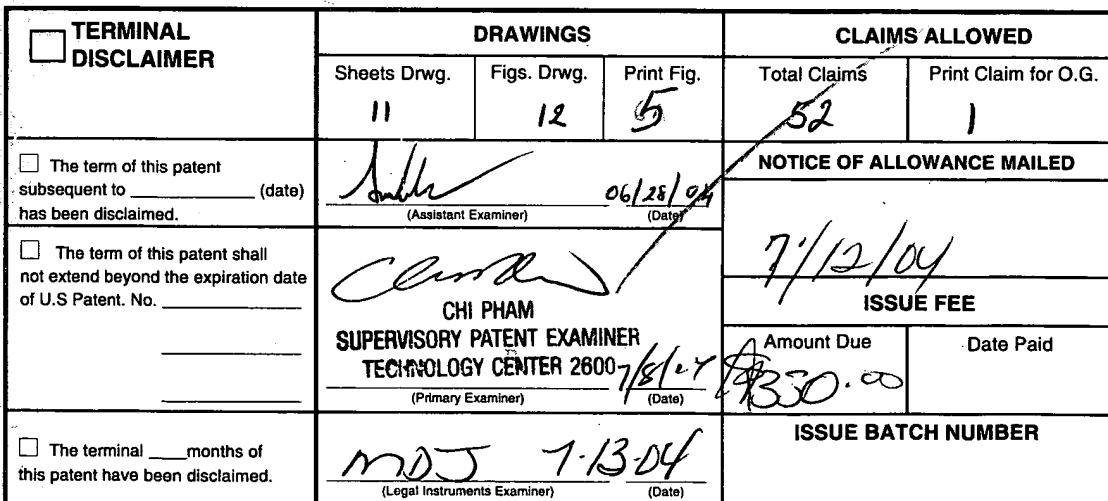 TERMINAL
DISCLAIMER
DRAWINGS
CLAIMS ALLOWED
Sheets Drwg.
Figs. Drwg.
Print Fig.
Total Claims
Print Claim for O.G.
11
12
5
52
1
The term of this patent
subsequent to ____________ (date)
has been disclaimed.
06/28/04
(Assistant Examiner)
(Date)
NOTICE OF ALLOWANCE MAILED
7/12/04
The term of this patent shall
not extend beyond the expiration date
of U.S Patent. No. ____________
CHI PHAM
SUPERVISORY PATENT EXAMINER
TECHNOLOGY CENTER 2600
7/8/04
(Primary Examiner)
(Date)
ISSUE FEE
Amount Due
Date Paid
The terminal ____months of
this patent have been disclaimed.
MDJ 7-13-04
(Legal Instruments Examiner)
(Date)
ISSUE BATCH NUMBER